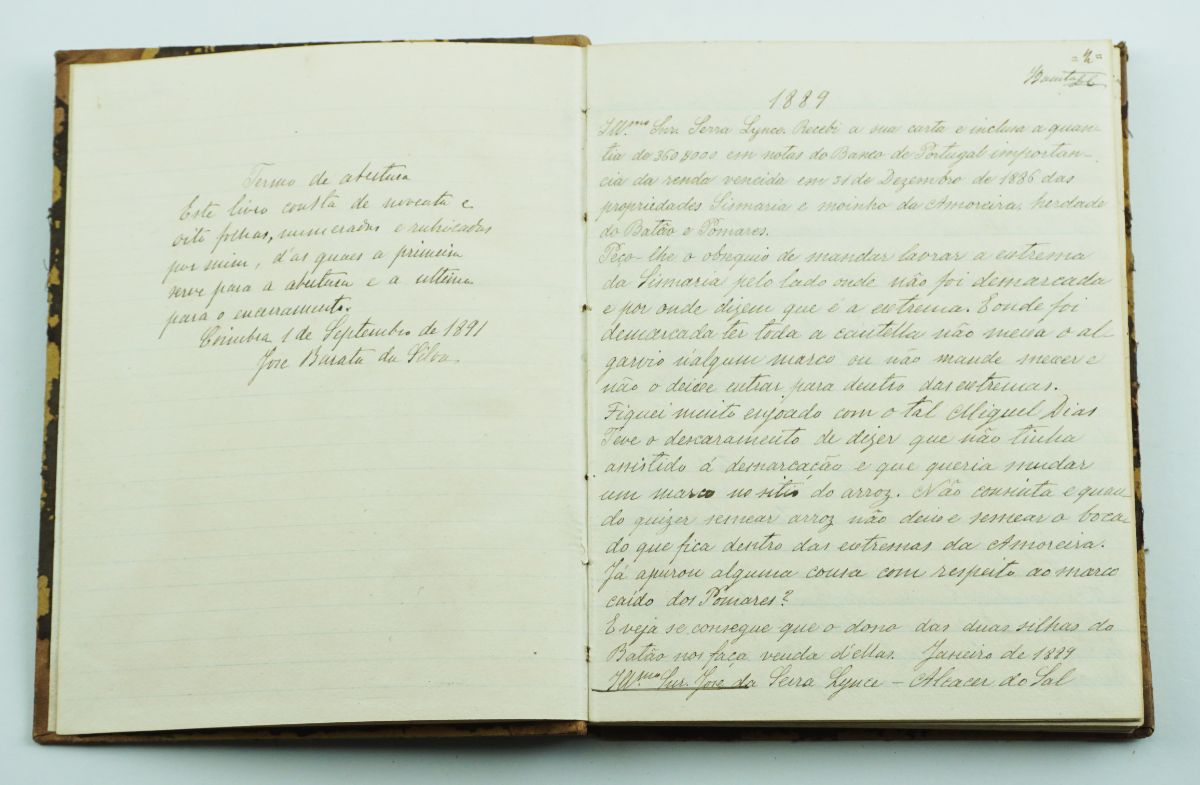 Termo de abertura
Este livro consta de noventa e
oito folhas, numeradas e rubricadas
por mim, d'as quaes a primeira
serve para a abertura e a ultima
para o encerramento.
Coimbra 1 de Septembro de 1891
José Barata da Silva
Barata
1889
Ill.mo Snr. Serra Lynce. Recebi a sua carta e inclusa a quan-
tia de 360,8000 em notas do Banco de Portugal importan-
cia da renda vencida em 31 de Dezembro de 1886 das
propriedades Sismaria e moinho da Amoreira, herdade
do Batão e Pomares.
Peço-lhe o obsequio de mandar lavrar a extrema
da Sismaria pelo lado onde não foi demarcada
e por onde dizem que é a extrema. E onde foi
demarcada ter toda a cautella não mexa o al
garvio n'algum marco ou não mande mexer e
não o deixe entrar para dentro das extremas.
Fiquei muito enjoado com o tal Miguel Dias
Teve o descaramento de dizer que não tinha
assistido á demarcação e que queria mudar
um marco no sitio do arroz. Não consinta e quan
do quizer semear arroz não deixe semear o boca-
do que fica dentro das extremas da Amoreira.
Já apurou alguma cousa com respeito ao marco
caído dos Pomares?
E veja se consegue que o dono das duas silhas do
Batão nos faça venda d'ellas. Janeiro de 1889
Ill.mo Snr. José da Serra Lynce – Alcacer do Sal